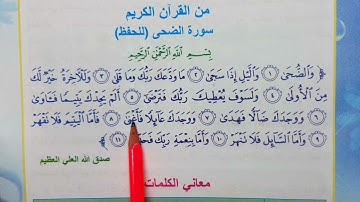 من القرآن الكريم
سورة الضحى (للحفظ)
بِسْمِ اللَّهِ الرَّحْمَٰنِ الرَّحِيمِ
﴿ وَالضُّحَىٰ ١ وَاللَّيْلِ إِذَا سَجَىٰ ٢ مَا وَدَّعَكَ رَبُّكَ وَمَا قَلَىٰ ٣ وَلَلْآخِرَةُ خَيْرٌ لَّكَ
مِنَ الْأُولَىٰ ٤ وَلَسَوْفَ يُعْطِيكَ رَبُّكَ فَتَرْضَىٰ ٥ أَلَمْ يَجِدْكَ يَتِيمًا فَآوَىٰ
٦ وَوَجَدَكَ ضَالًّا فَهَدَىٰ ٧ وَوَجَدَكَ عَائِلًا فَأَغْنَىٰ ٨ فَأَمَّا الْيَتِيمَ فَلَا تَقْهَرْ
٩ وَأَمَّا السَّائِلَ فَلَا تَنْهَرْ ١٠ وَأَمَّا بِنِعْمَةِ رَبِّكَ فَحَدِّثْ ١١ ﴾
صدق الله العلي العظيم
معاني الكلمات